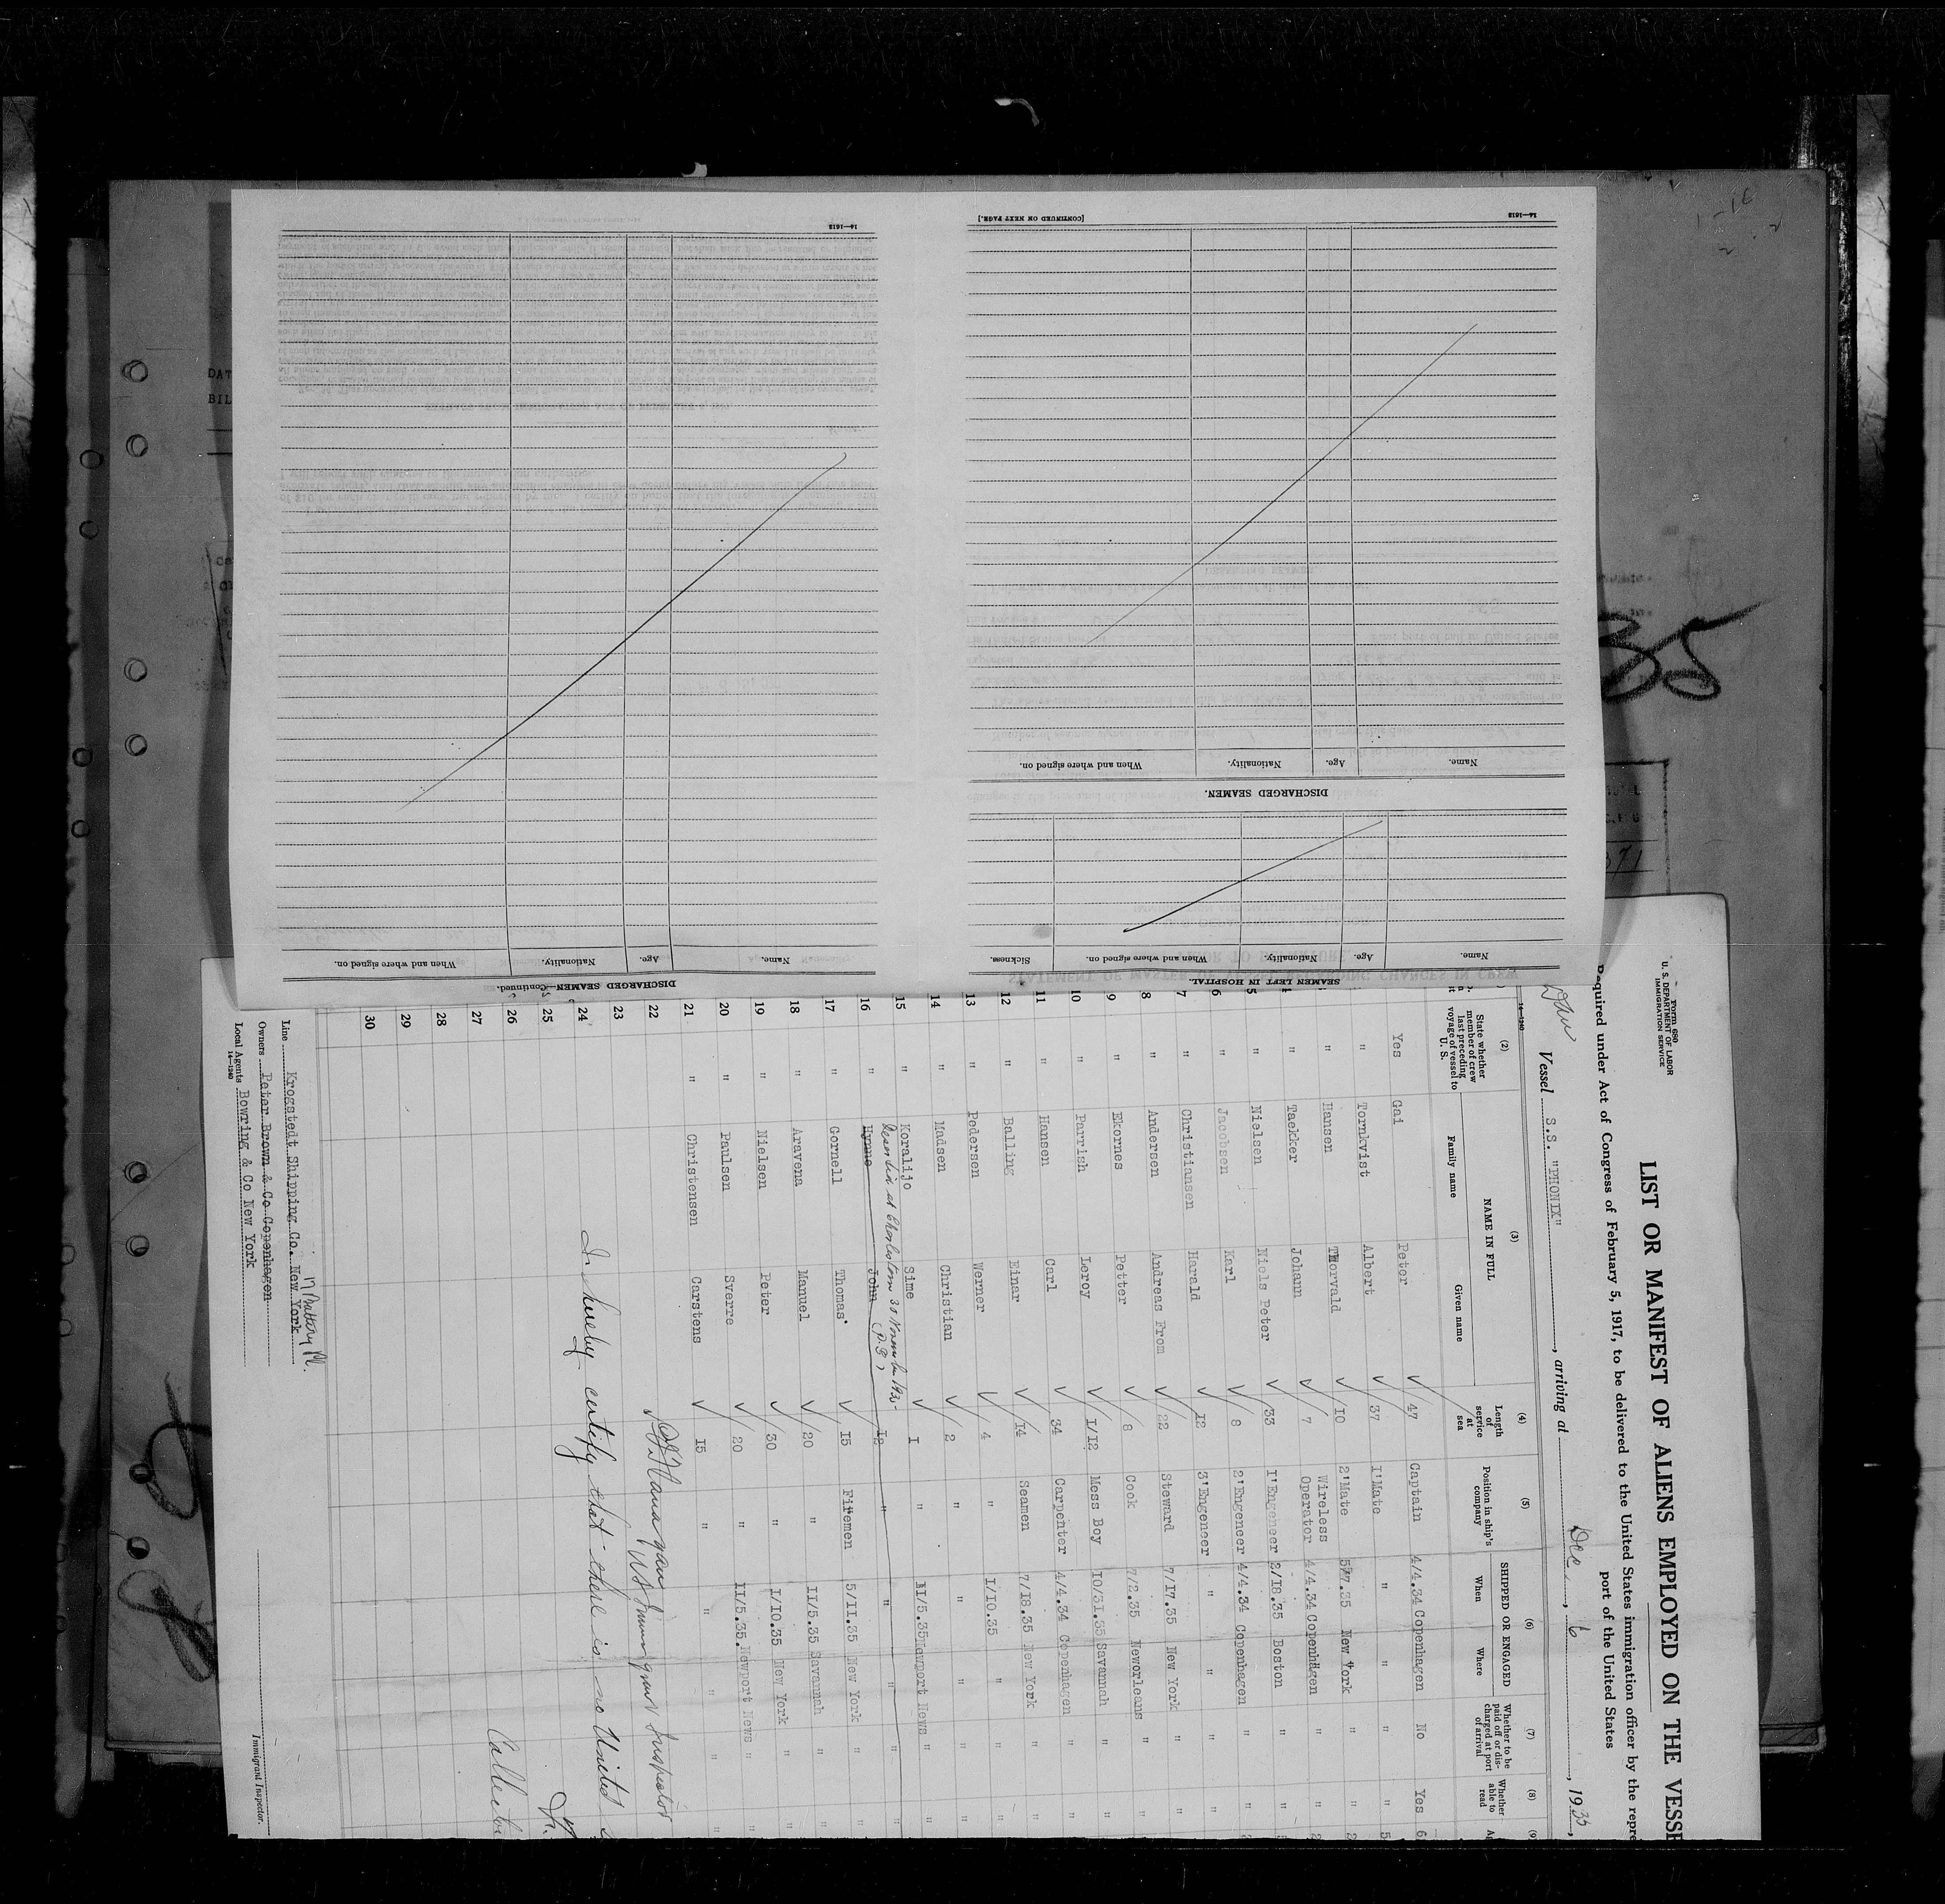 [CONTINUED ON NEXT PAGE.]
14—1613
14—1613
Name.
Age.
Nationality.
When and where signed on.
DISCHARGED SEAMEN.
Name.
Age.
Nationality.
When and where signed on.
Sickness.
SEAMEN LEFT IN HOSPITAL.
Name.
Age.
Nationality.
When and where signed on.
DISCHARGED SEAMEN—Continued.
35
DAT
BIL
Form 680
U. S. DEPARTMENT OF LABOR
IMMIGRATION SERVICE
LIST OR MANIFEST OF ALIENS EMPLOYED ON THE VESSE
Required under Act of Congress of February 5, 1917, to be delivered to the United States immigration officer by the repre
port of the United States
Vessel S.S. "PHONIX", arriving at Dec, 6, 1935,
14—1240
(2) (3) (4) (5) (6) (7) (8) (9)
State whether member of crew last preceding voyage of vessel to U. S.
NAME IN FULL
Family name
Given name
Length of service at sea
Position in ship's company
SHIPPED OR ENGAGED
When
Where
Whether to be paid off or discharged at port of arrival
Whether able to read
Yes Gai Peter 47 Captain 4/4.34 Copenhagen No Yes
" Tornkvist Albert 37 1'Mate " " " "
" Hansen THorvald 10 2'Mate 5/7.35 New York " "
" Taekker Johann 7 Wireless Operator 4/4.34 Copenhagen " "
5 " Nielsen Niels Peter 33 1'Engeneer 2/18.35 Boston " "
6 " Jacobsen Karl 8 2'Engeneer 4/4.34 Copenhagen " "
7 " Christiansen Harald 12 3'Engeneer " " " "
8 " Andersen Andreas From 22 Steward 7/17.35 New York " "
9 " Ekornes Petter 8 Cook 7/2.35 Neworleans " "
10 " Parrish Leroy 1/12 Mess Boy 10/31.35 Savannah " "
11 " Hansen Carl 34 Carpenter 4/4.34 Copenhagen " "
12 " Balling Einar 14 Seamen 7/18.35 New York " "
13 " Pedersen Werner 4 " 1/10.35 " " "
14 " Madsen Christian 2 " " " " "
15 " Koralijo Sime 1 " 11/5.35 Newport News " "
Deserted at Charleston 30 November 1935
16 " Hynne John 12 " " " " "
17 " Gornell Thomas 15 Firemen 5/11.35 New York " "
18 " Aravena Manuel 20 " 11/5.35 Savannah " "
19 " Nielsen Peter 30 " 1/10.35 New York " "
20 " Paulsen Sverre 20 " 11/5.35. Newport News " "
21 " Christensen Carstens 15 " " " " "
22
23
24
25
26
27
28
29
30
US Immigrant Inspector
I hereby certify that there is no United
Line Krogstedt Shipping Co. New York
17 Battery Pl.
Owners Peter Brown & Co Copenhagen
Local Agents Bowring & Co New York
14—1240
Immigrant Inspector.